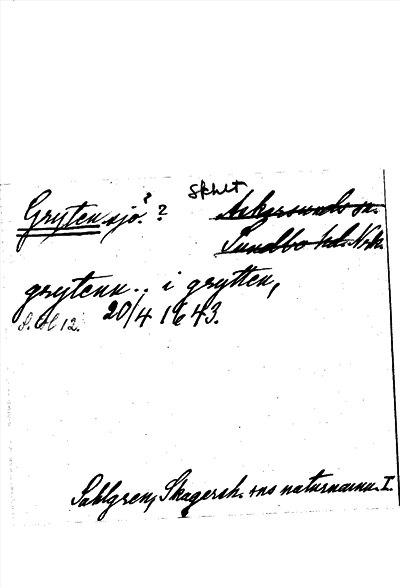 Skhlt
Gryten sjö? ? Askersunds sn.
Sundbo hd. Nrk.
grytenn.. i grytten,
S. H 12. 20/4 1643.
Sahlgren, Skagersh. sns naturnamn. I.